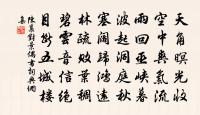 天角暝光收
空中爽氣流
雨回巫峽暮
波起洞庭秋
塞闊歸鴻遠
林疏敗葉稠
碧雲音信絕
目斷五城樓
陳襄對景偶書詞典網
集